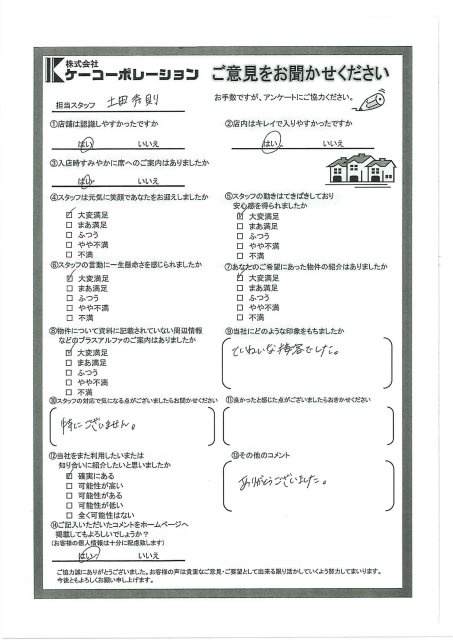 株式会社
ケーコーポレーション
ご意見をお聞かせください
担当スタッフ 土田秀則
お手数ですが、アンケートにご協力ください。
①店舗は認識しやすかったですか
はい いいえ
②店内はキレイで入りやすかったですか
はい いいえ
③入店時すみやかに席へのご案内はありましたか
はい いいえ
④スタッフは元気に笑顔であなたをお迎えしましたか
大変満足
まあ満足
ふつう
やや不満
不満
⑤スタッフの動きはてきぱきしており
安心感を得られましたか
大変満足
まあ満足
ふつう
やや不満
不満
⑥スタッフの言動に一生懸命さを感じられましたか
大変満足
まあ満足
ふつう
やや不満
不満
⑦あなたのご希望にあった物件の紹介はありましたか
大変満足
まあ満足
ふつう
やや不満
不満
⑧物件について資料に記載されていない周辺情報
などのプラスアルファのご案内はありましたか
大変満足
まあ満足
ふつう
やや不満
不満
⑨当社にどのような印象をもちましたか
ていねいな接客でした。
⑩スタッフの対応で気になる点がございましたらお聞かせください
特にございません。
⑪良かったと感じた点がございましたらおきかせください
⑫当社をまた利用したいまたは
知り合いに紹介したいと思いましたか
確実にある
可能性が高い
可能性がある
可能性が低い
全く可能性はない
⑬その他のコメント
ありがとうございました。
⑭ご記入いただいたコメントをホームページへ
掲載してもよろしいでしょうか?
(お客様の個人情報は十分に配慮致します)
はい いいえ
ご協力誠にありがとうございました。お客様の声は貴重なご意見・ご要望として出来る限り活かしていくよう努力してまいります。
今後ともよろしくお願い申し上げます。